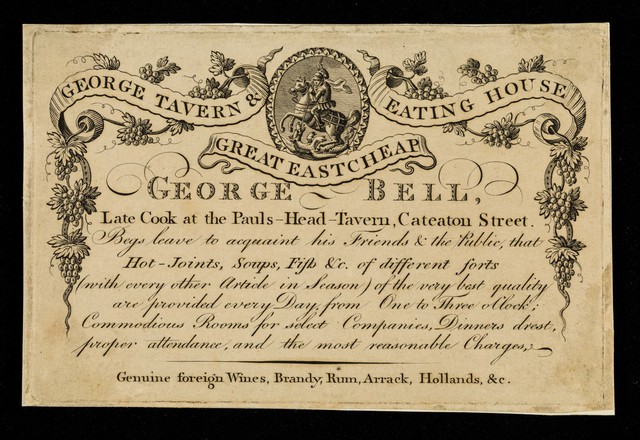 GEORGE TAVERN & EATING HOUSE
GREAT EASTCHEAP
GEORGE BELL,
Late Cook at the Pauls-Head-Tavern, Cateaton Street.
Begs leave to acquaint his Friends & the Public, that
Hot-Joints, Soups, Fiſh &c. of different ſorts
(with every other Article in Season) of the very best quality
are provided every Day, from One to Three o'Clock;
Commodious Rooms for select Companies, Dinners drest,
proper attendance, and the most reasonable Charges,
Genuine foreign Wines, Brandy, Rum, Arrack, Hollands, &c.